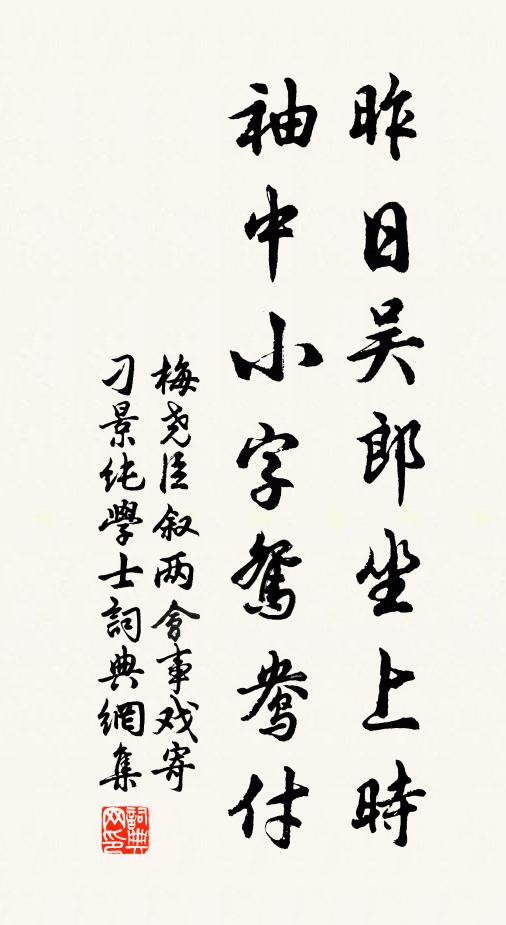 昨日吴郎坐上時
袖中小字鴛鴦付
梅尧臣叙两會事戏寄
刁景纯學士詞典網集
詞典网印